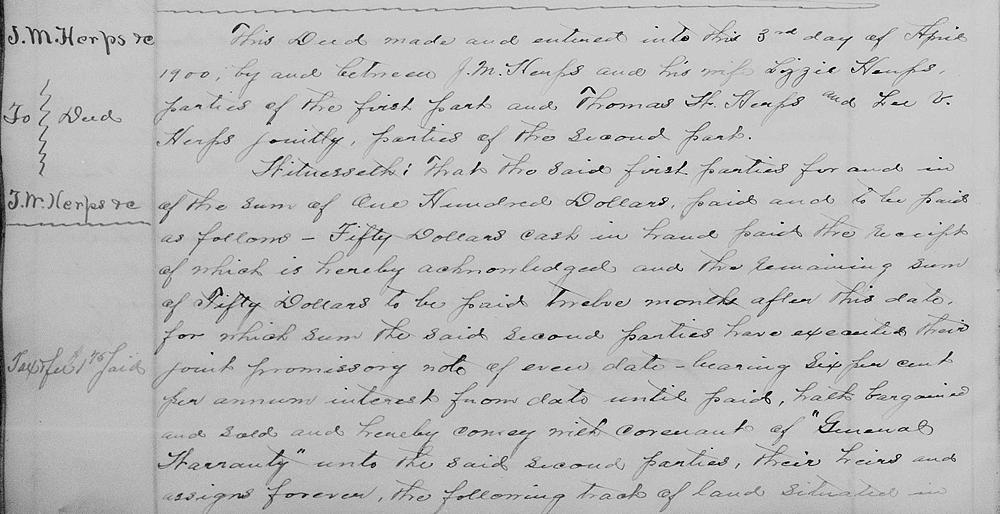 J.M. Herps &c
To Deed
T.W. Herps &c
Tax & fee 1 75 Paid
This Deed made and entered into this 3rd day of April
1900, by and between J.M. Herps and his wife Lizzie Herps,
parties of the first part and Thomas W. Herps and Lee V.
Herps jointly, parties of the second part.
Witnesseth: That the said first parties for and in
of the sum of One Hundred Dollars, paid and to be paid
as follows - Fifty Dollars cash in hand paid the receipt
of which is hereby acknowledged and the remaining sum
of Fifty Dollars to be paid twelve months after this date,
for which sum the said second parties have executed their
joint promissory note of even date - bearing six per cent
per annum interest from date until paid, hath bargained
and sold and hereby convey with covenant of "General
Warranty" unto the said second parties, their heirs and
assigns forever, the following track of land situated in